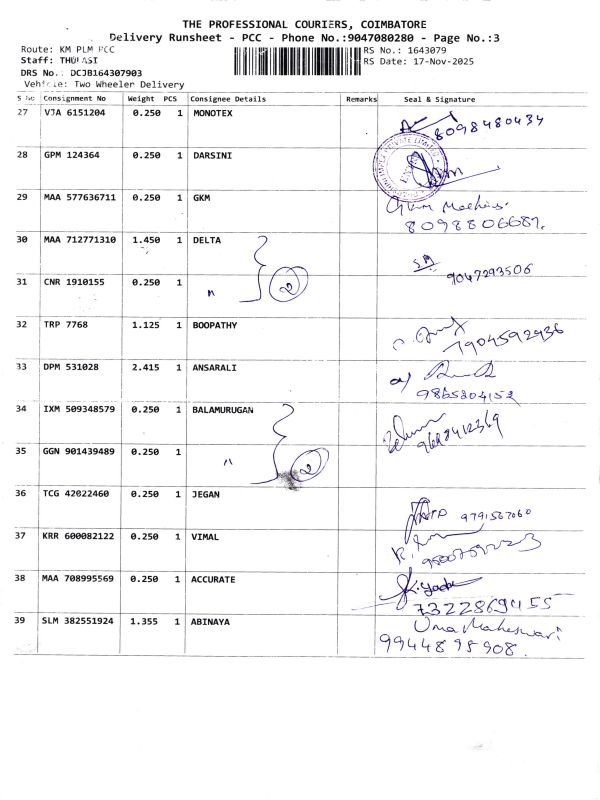 THE PROFESSIONAL COURIERS, COIMBATORE
Delivery Runsheet - PCC - Phone No.:9047080280 - Page No.:3
Route: KM PLM PCC
RS No.: 1643079
Staff: THULASI
RS Date: 17-Nov-2025
DRS No.: DCJB164307903
Vehicle: Two Wheeler Delivery
S No Consignment No Weight PCS Consignee Details Remarks Seal & Signature
27 VJA 6151204 0.250 1 MONOTEX 8098480434
28 GPM 124364 0.250 1 DARSINI
29 MAA 577636711 0.250 1 GKM
8098806687.
30 MAA 712771310 1.450 1 DELTA
9047293506
31 CNR 1910155 0.250 1 " 2
32 TRP 7768 1.125 1 BOOPATHY
7904592936
33 DPM 531028 2.415 1 ANSARALI
9865304152
34 IXM 509348579 0.250 1 BALAMURUGAN
9698412369
35 GGN 901439489 0.250 1 " 2
36 TCG 42022460 0.250 1 JEGAN
9791567060
37 KRR 600082122 0.250 1 VIMAL
38 MAA 708995569 0.250 1 ACCURATE
7322869455
39 SLM 382551924 1.355 1 ABINAYA Uma Maheswari
9944895908.